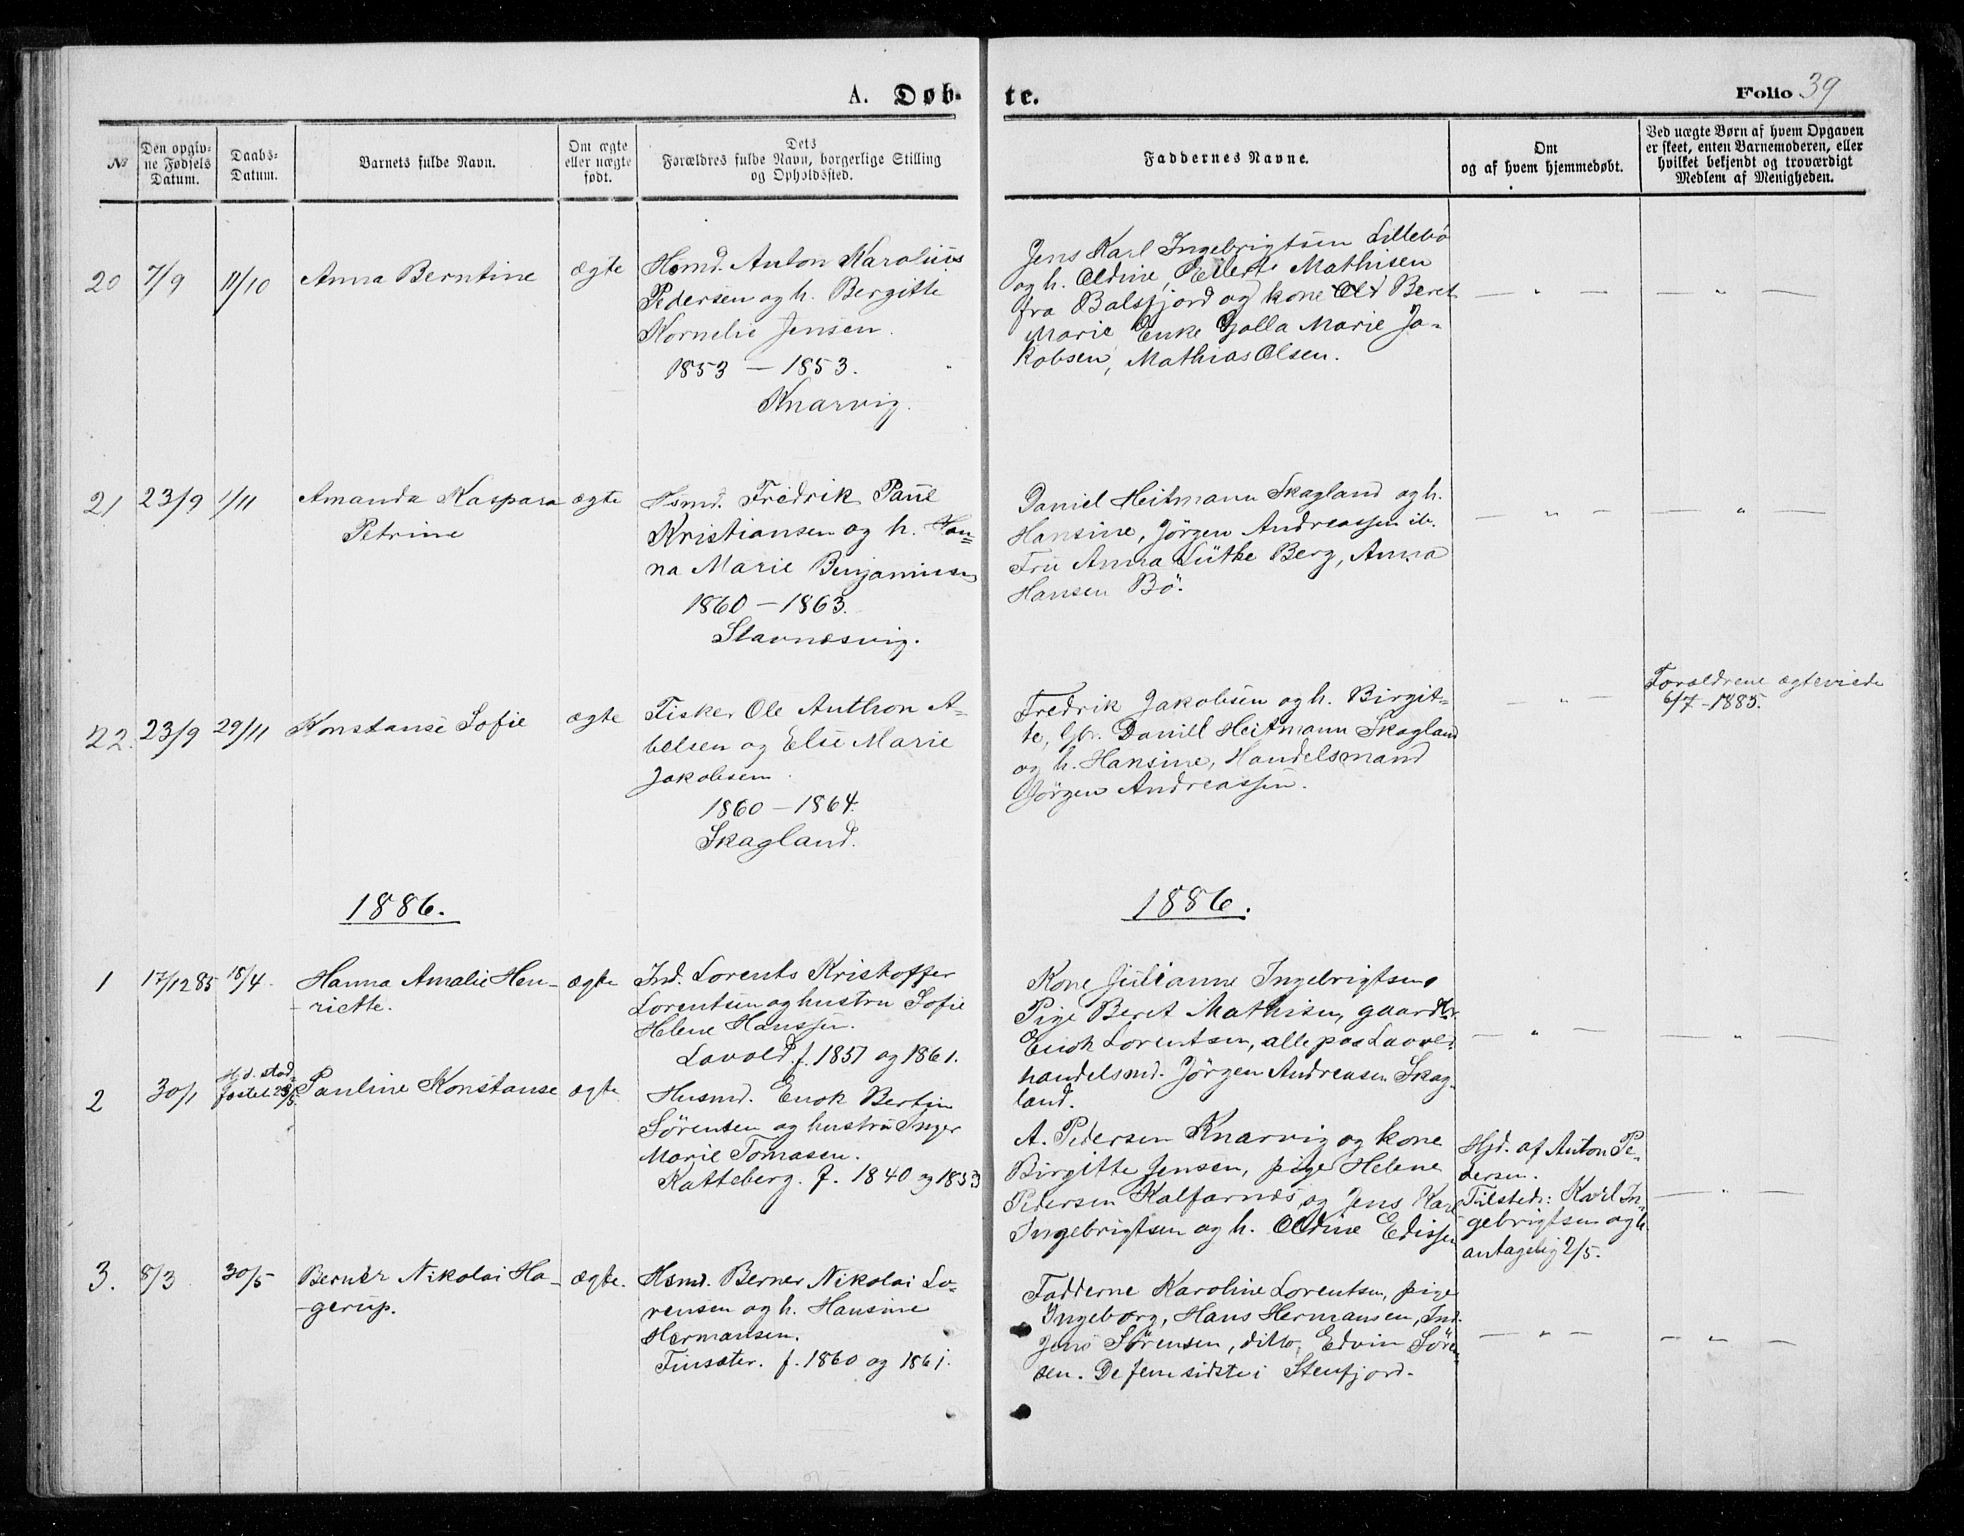 A. Døb-
te.
Folio 39
№
Den opgiv-
ne Fødsels
Datum.
Daabs-
Datum.
Barnets fulde Navn.
Om ægte
eller uægte
født.
Dets
Forældres fulde Navn, borgerlige Stilling
og Opholdssted.
Faddernes Navne.
Om
og af hvem hjemmedøbt.
Ved uægte Børn af hvem Opgaven
er skeet, enten Barnemoderen, eller
hvilket bekjendt og troværdigt
Medlem af Menigheden.
20 7/9 11/10 Anna Berntine ægte
Hsmd. Anton Karolius
Pedersen og h. Bergitte
Kornelie Jensen.
1853 — 1853.
Knarvig.
Jens Karl Ingebrigtsen Lillebö
og h. Oldine, Eilert Mathisen
fra Balsfjord og kone Beret
Marie, Enke Marie Ja-
kobsen, Mathias Olsen.
— " —
— " —
21 23/9 1/11 Amanda Kaspara ægte
Petrine
Hsmd. Fredrik Paul
Kristiansen og h. Han=
na Marie Benjaminsen
1860 — 1863.
Stavnæsvig.
Daniel Heitmann Skagland og h.
Hansine, Jörgen Andreassen ib.
Fru Anna Lütke Berg, Anna
Hansen Bö.
— " —
— " —
22. 23/9 29/11 Konstanse Sofie ægte
Fisker Ole Anthon A-
belsen og Else Marie
Jakobsen.
1860 — 1864.
Skagland.
Fredrik Jakobsen og h. Birgit-
te, Daniel Heitmann Skagland
og h. Hansine, Handelsmand
Jörgen Andreassen.
— " —
Forældrene ægteviede
6/7 - 1885.
1886.
1886.
1 17/12 85 18/4. Hanna Amalie Hen- ægte
-riette.
Ind. Lorents Kristoffer
Lorentsen og hustru Sofie
Helene Hanssen.
Lavold f. 1857 og 1861.
Kone Julianne Ingebrigtsen,
Pige Beret Mathisen, gaardbr.
Enok Lorentsen, alle paa Laavol
handelsmd. Jörgen Andreasen Skag-
land.
— " —
— " —
2 30/1 Hd. stad-
fæstet 23/5. Pauline Konstanse ægte.
Husmd. Enok Bertin
Sörensen og hustru Inger
Marie Tomasen.
Katteberg. f. 1840 og 1853
A. Pedersen Knarvig og kone
Birgitte Jensen, pige Helene
Pedersen Kalfarnæs og Jens Karl
Ingebrigtsen og h. Oldine Edissen
Hjd. af Anton Pe-
dersen.
Tilstede: Karl In-
gebrigtsen og h.
antagelig 2/5.
— " —
3. 8/3 30/5 Berner Nikolai Ha- ægte.
-gerup.
Hsmd. Berner Nikolai Lo-
rensen og h. Hansine
Hermansen.
Finsæter. f. 1860 og 1861.
Fadderne Karoline Lorentsen, pige
Ingeborg, Hans Hermansen, Ind.
Jens Sörensen, ditto, Edvin Sören-
sen. De fem sidste i Stenfjord.
— " —
— " —